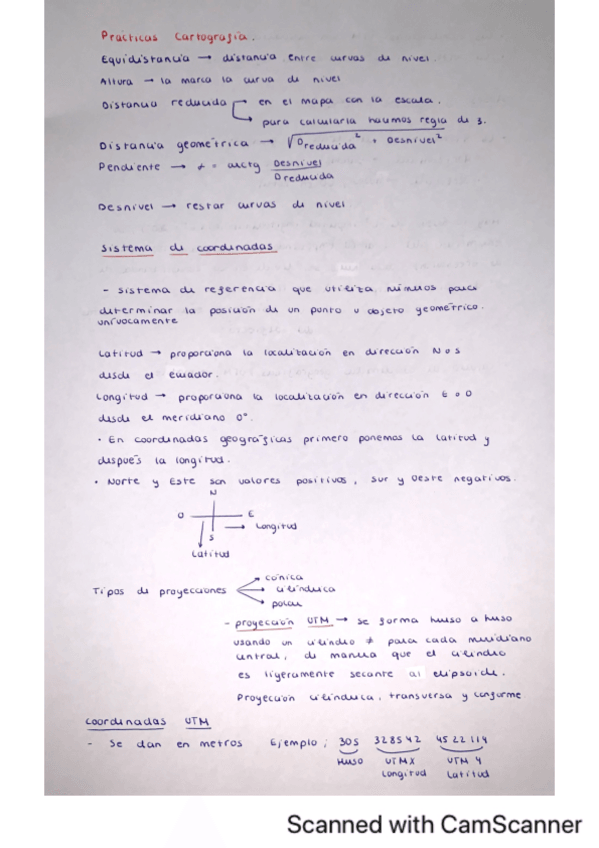 Prácticas Cartografía.
Equidistancia → distancia entre curvas de nivel.
Altura → la marca la curva de nivel
Distancia reducida → en el mapa con la escala.
→ para calcularla hacemos regla de 3.
Distancia geométrica → √Dreducida² + Desnivel²
Pendiente → ≠ = arctg Desnivel
Dreducida
Desnivel → restar curvas de nivel
Sistema de coordenadas
- sistema de referencia que utiliza números para
determinar la posición de un punto u objeto geométrico.
unívocamente
Latitud → proporciona la localización en dirección N o S
desde el ecuador.
Longitud → proporciona la localización en dirección E o O
desde el meridiano 0°.
• En coordenadas geográficas primero ponemos la latitud y
después la longitud.
• Norte y Este son valores positivos, sur y oeste negativos.
N
O E
→ Longitud
S
Latitud
Tipos de proyecciones → cónica
→ cilíndrica
→ polar
- proyección UTM → se forma huso a huso
usando un cilindro ≠ para cada meridiano
central, de manera que el cilindro
es ligeramente secante al elipsoide.
Proyección cilíndrica, transversa y conforme
Coordenadas UTM
- Se dan en metros Ejemplo; 30S 328542 4522114
Huso UTM X UTM Y
Longitud Latitud
Scanned with CamScanner